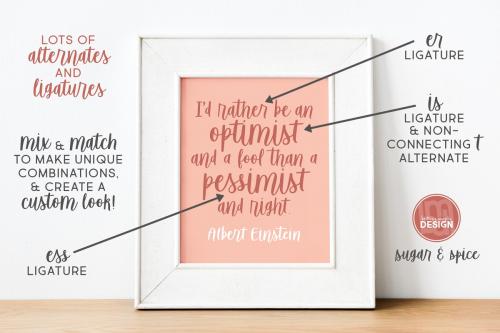 LOTS OF
alternates
AND
ligatures
mix & match
TO MAKE UNIQUE
COMBINATIONS,
& CREATE A
custom look!
ess
LIGATURE
I'd rather be an
optimist
and a fool than a
pessimist
and right.
Albert Einstein
er
LIGATURE
is
LIGATURE
& NON-
CONNECTING t
ALTERNATE
DESIGN
sugar & spice